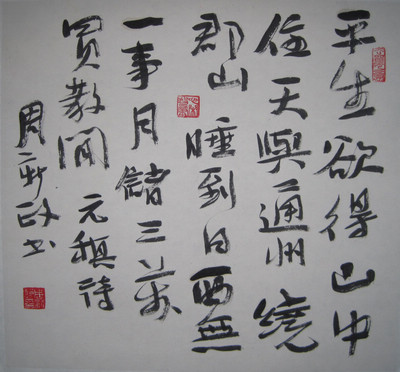 平生欲得山中
住天與通州繞
郡山睡到日西無
一事月儲三萬
買教閒 元稹詩
周新政书